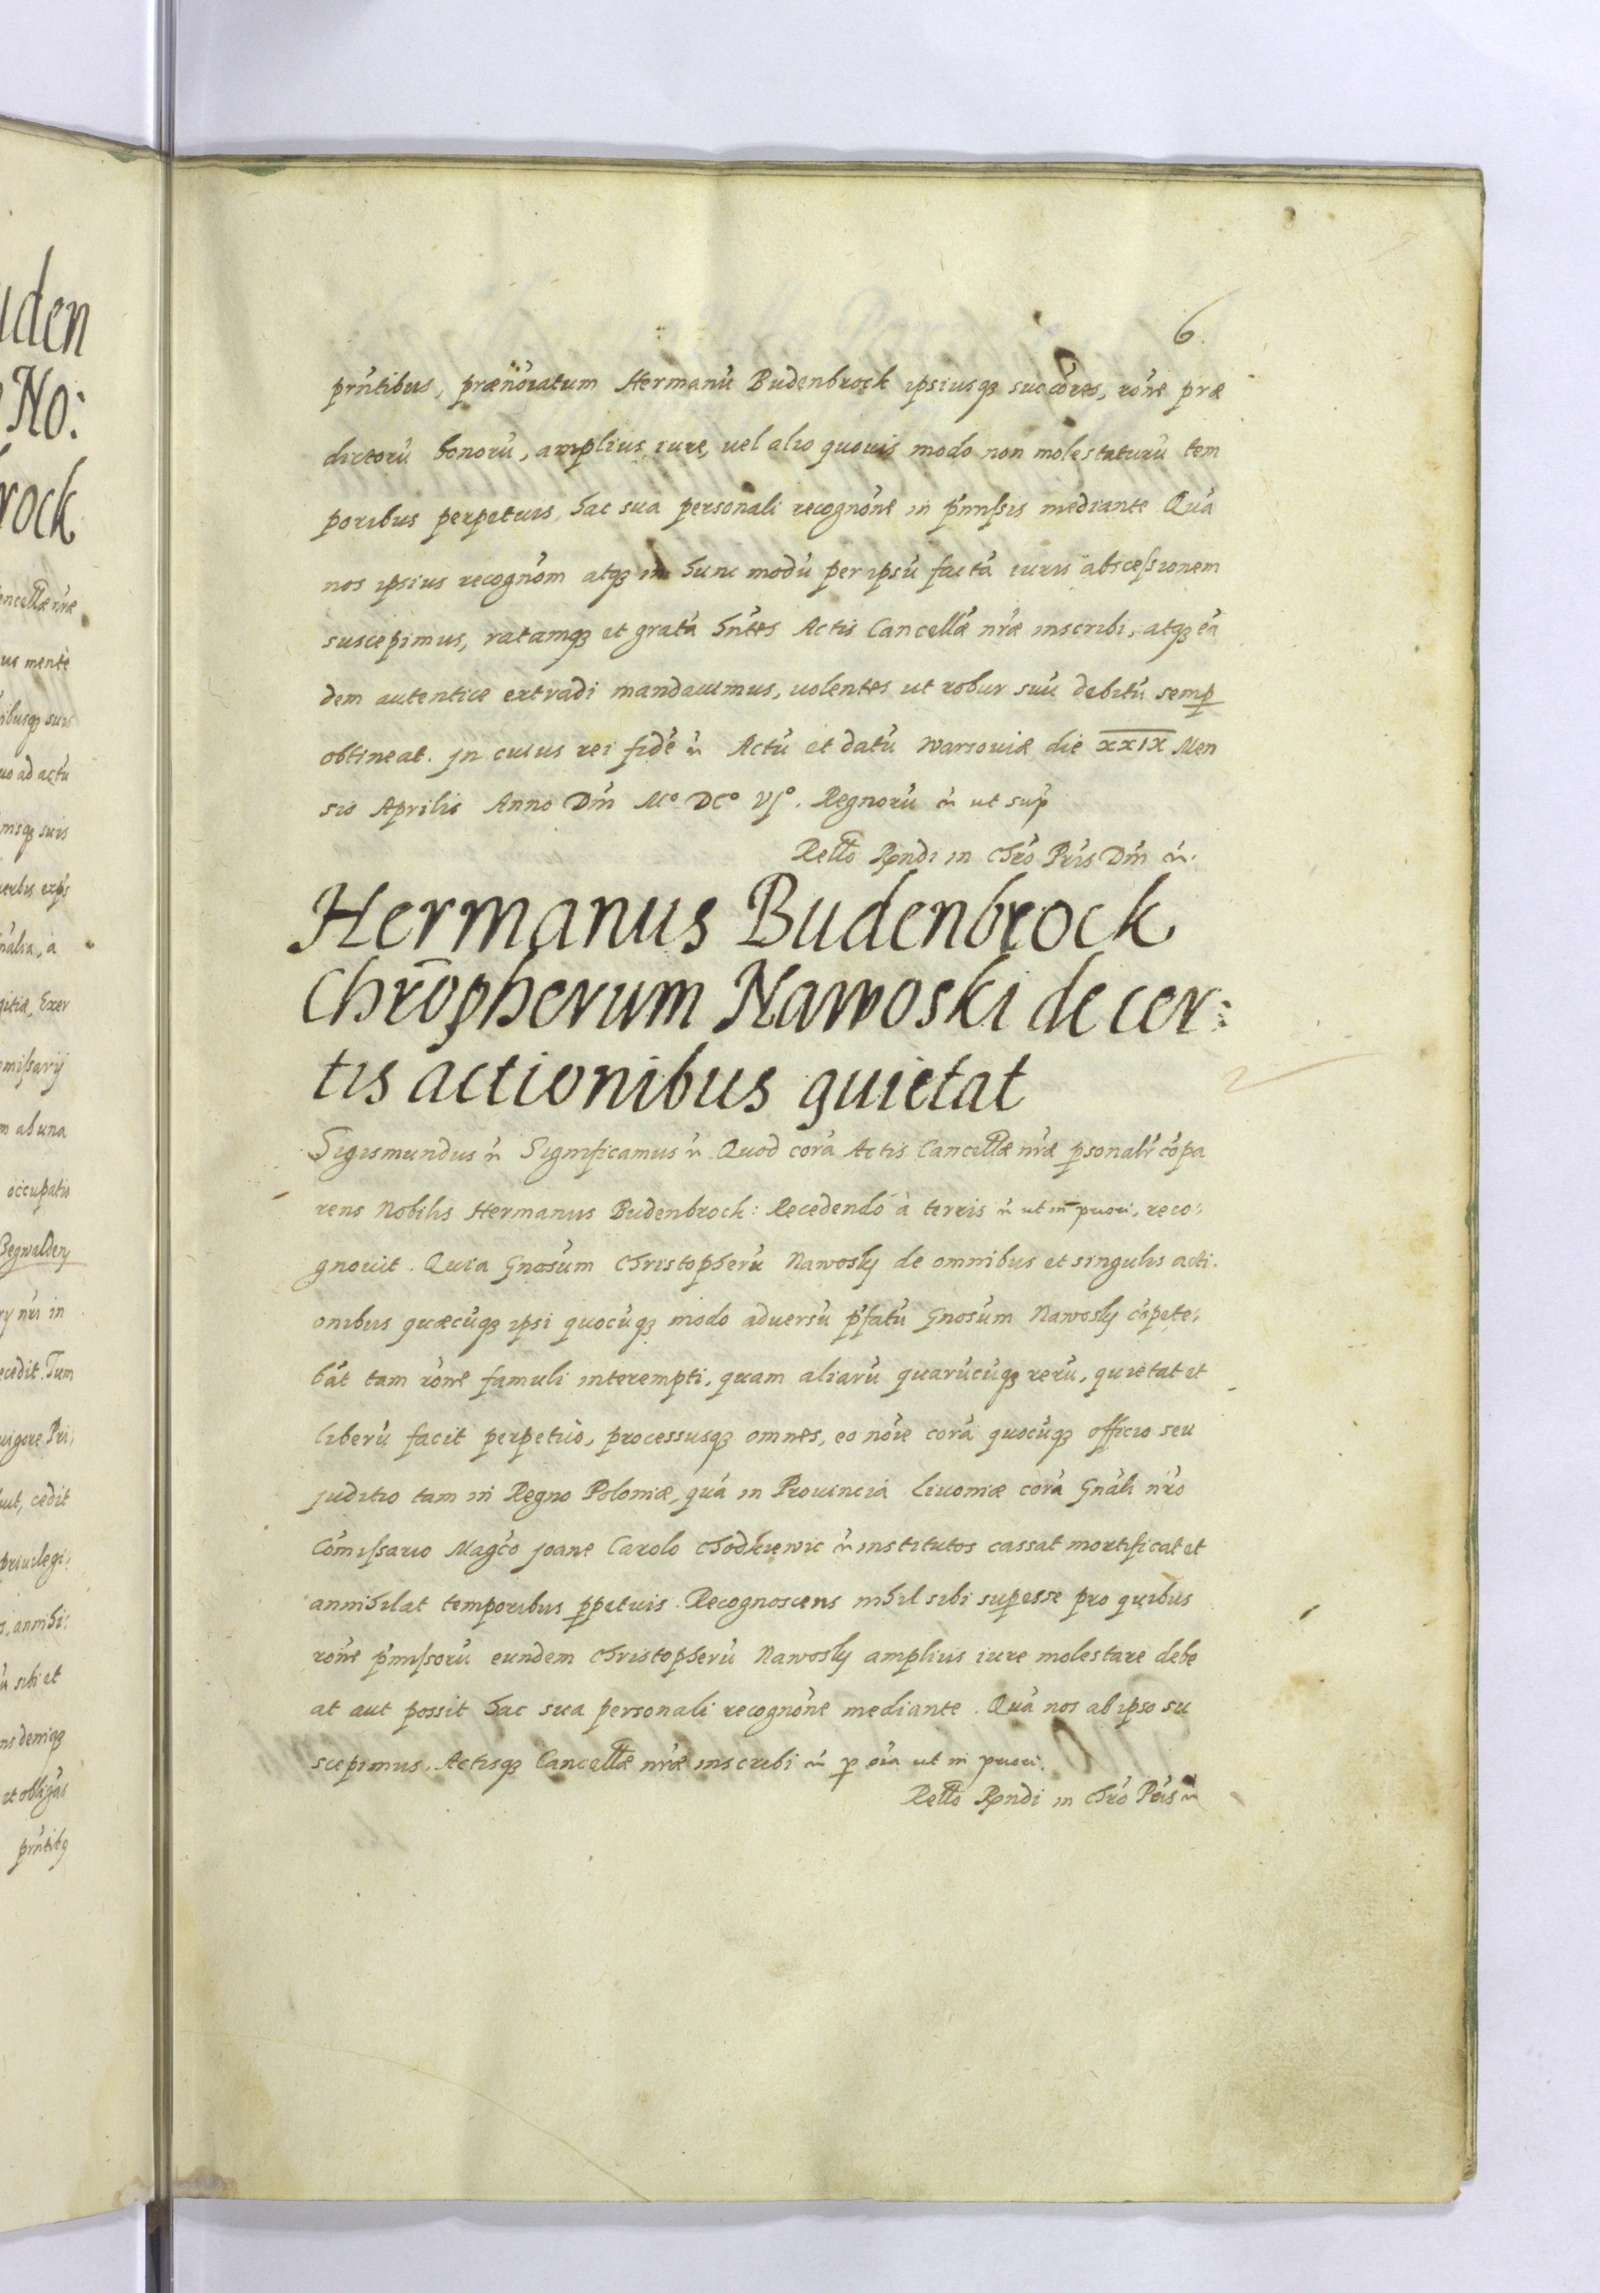 6.
prñtibus, prænōiatum Hermanū Budenbrock ipsiusq; succōres, rōne præ
dictorū bonorū, amplius iure, uel alio quouis modo non molestaturū tem
poribus perpetuis, hac sua personali recognōne in p̄missis mediante Quā
nos ipsius recognōm atq; in hunc modū per ipsū factā iuris abscessionem
suscepimus, ratamq; et gratā hñtes Actis Cancellæ nr̄æ inscribi, atq; eā
dem autentice extradi mandauimus, uolentes ut robur suū debitū semp
obtineat. In cuius rei fidē &c Actū et datū Warsouiæ die XXIX Men
sis Aprilis Anno Dñi M° DC° VI°. Regnorū &c ut sup
Rello Rñdi in Chrō Pris Dñi &c.
Hermanus Budenbrock
Chrōpherum Nawoski de cer:
tis actionibus quietat
Sigismundus &c Significamus &c Quod corā Actis Cancellæ nr̄æ psonalr̄ cōpa
rens Nobilis Hermanus Budenbrock: Recedendo à terris &c ut in priori, reco:
gnouit. Quia Gnosum Christopherū Nawosky de omnibus et singulis acti.
onibus quæcūq; ipsi quocūq; modo aduersū p̄fatū Gnosum Nawosky cōpete:
bāt tam rōne famuli interempti, quam aliarū quarūcūq; rerū, quietat et
liberū facit perpetuò, processusq; omnes, eo nōie corā quocūq; officio seu
juditio tam in Regno Poloniæ, quā in Prouincia Liuoniæ corā Gnāli nr̄o
Cōmissario Magco Joane Carolo Chodkiewic &c institutos cassat mortificat et
annihilat temporibus ppetuis. Recognoscens nihil sibi supesse pro quibus
rōne p̄missorū eundem Christopherū Nawosky amplius iure molestare debe
at aut possit hac sua personali recognōne mediante. Quā nos ab ipso su
scepimus, Actisq; Cancellæ nr̄æ inscribi &c p oīa ut in priori.
Rello Rñdi in Chrō Pris &c